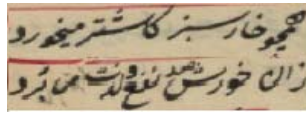 همچو خار سبز کاشتر میخورد
زان خورش صد نفع و لذت می برد